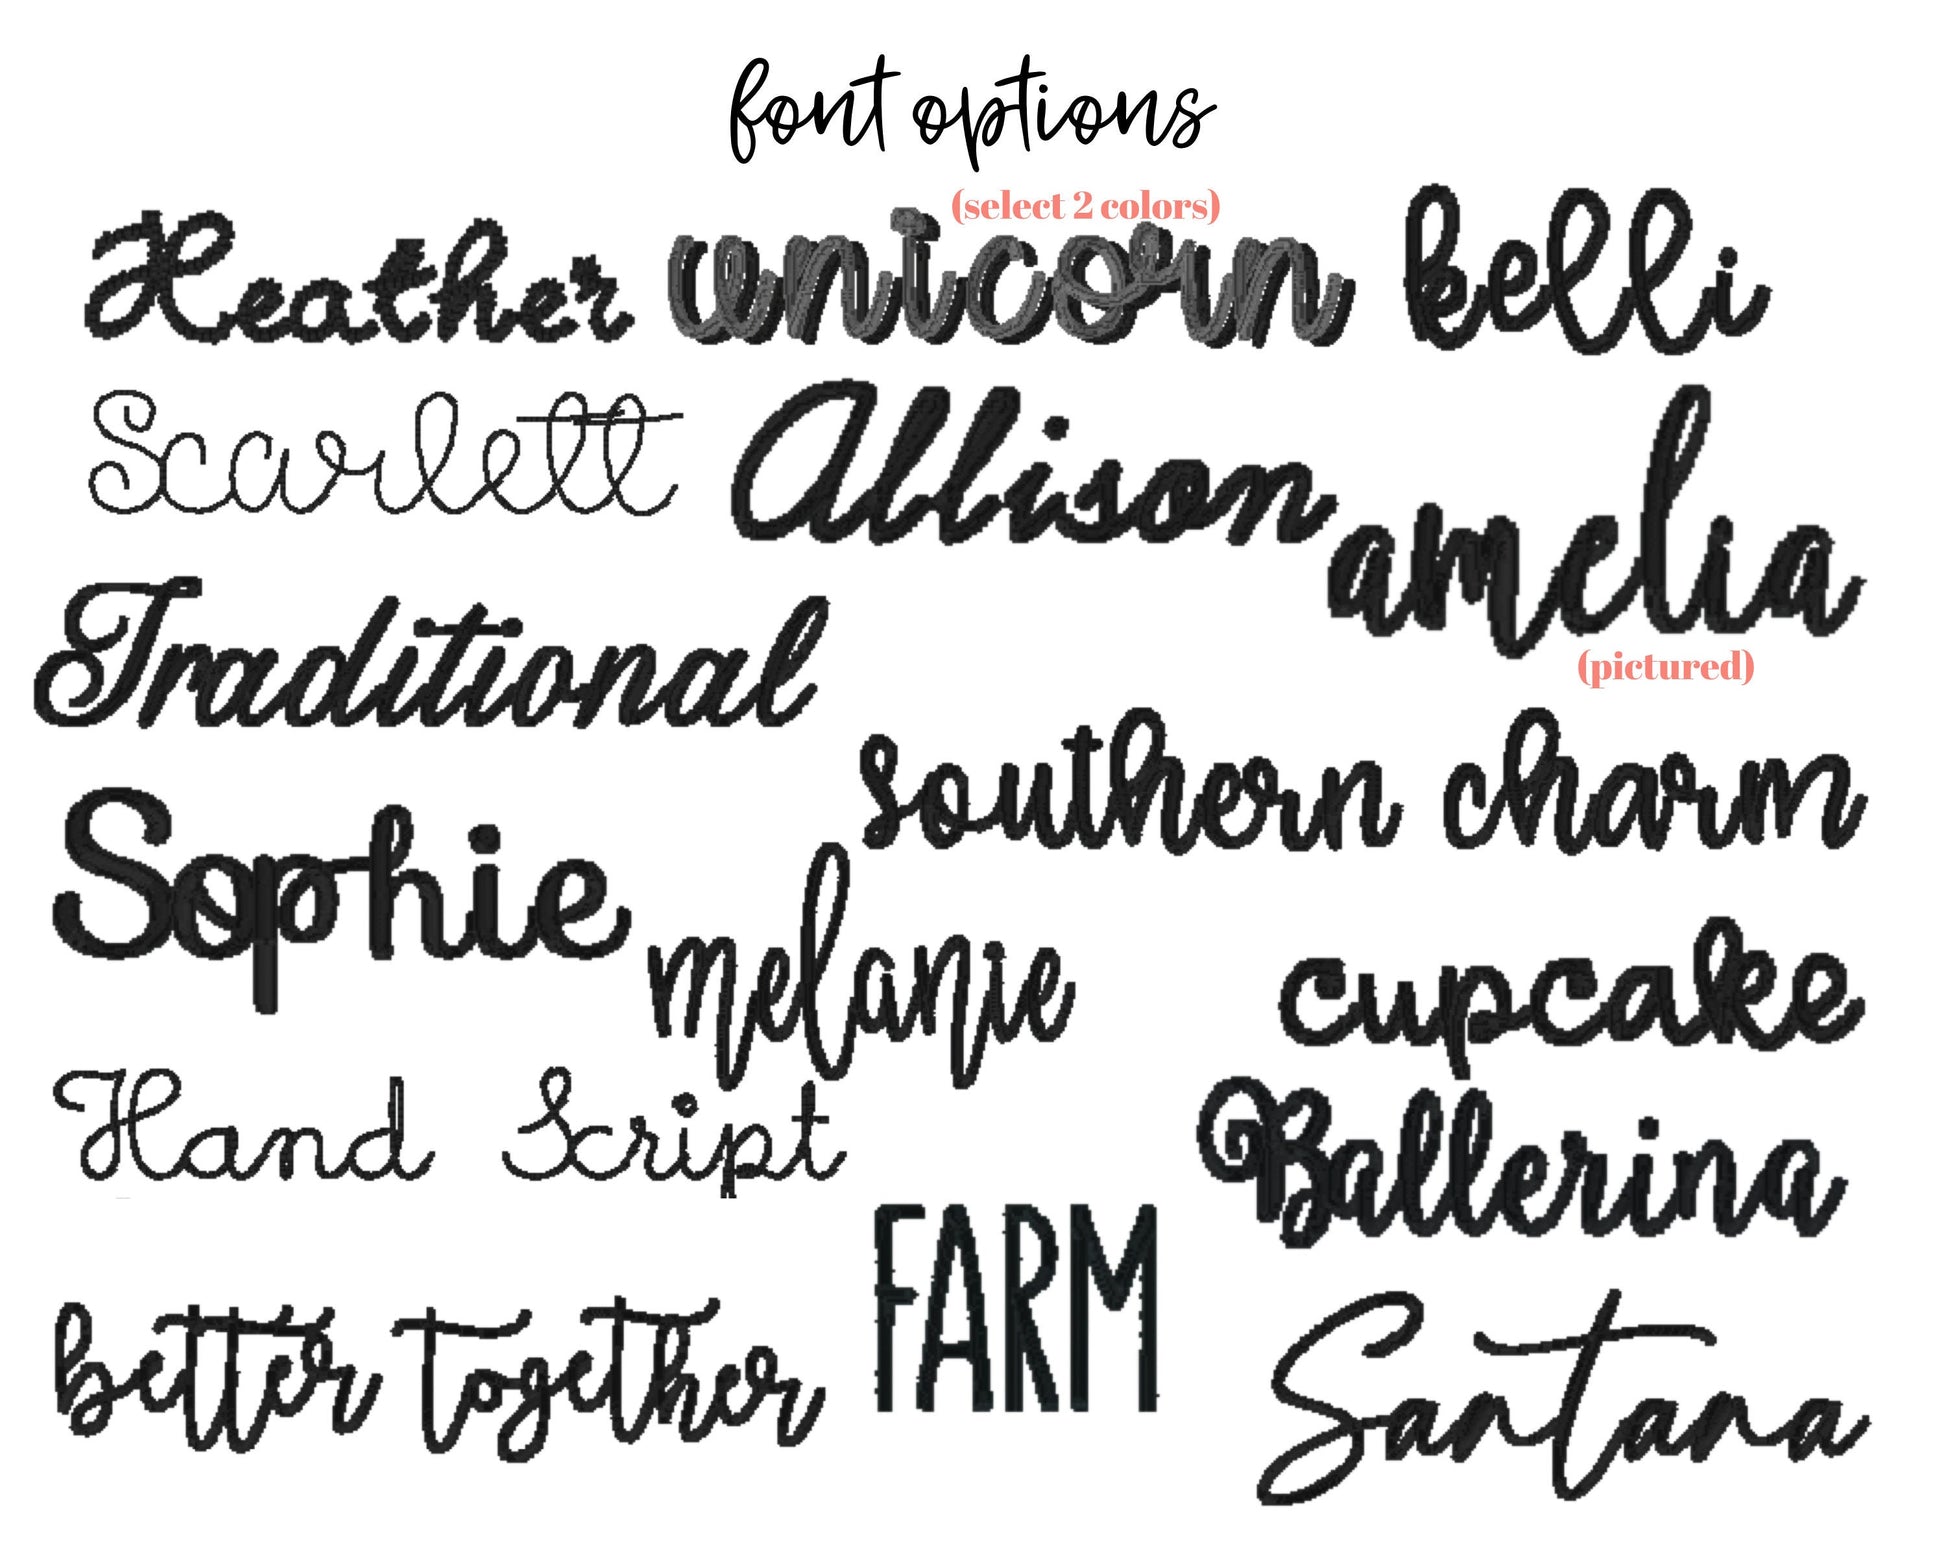 font options
(select 2 colors)
Heather unicorn kelli
Scarlett Allison amelia
(pictured)
Traditional
southern charm
Sophie melanie cupcake
Hand Script Ballerina
FARM
better together Santana